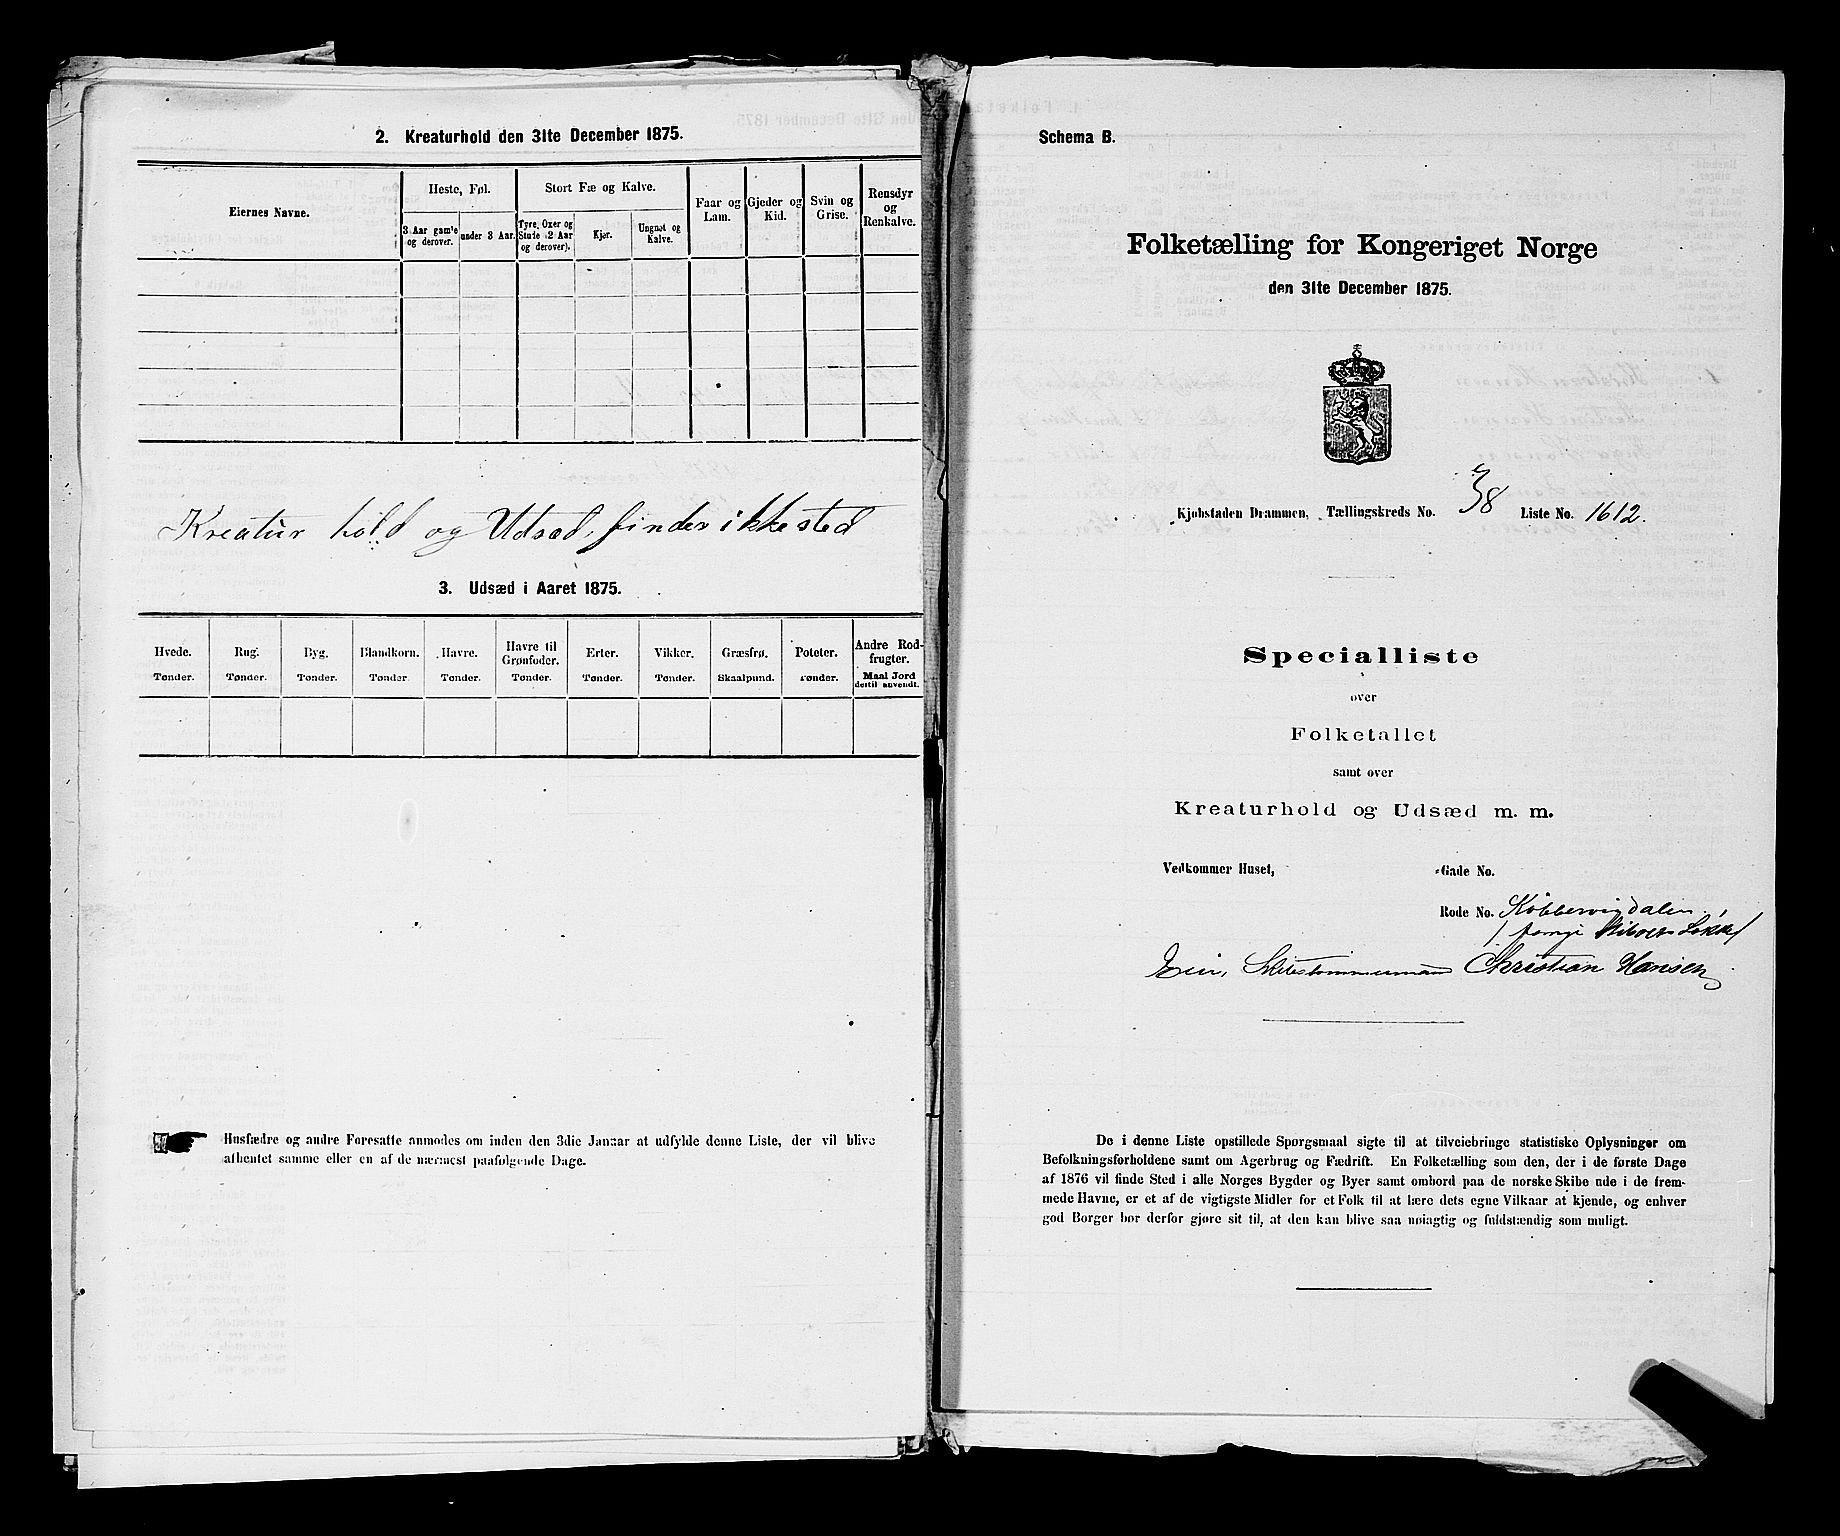 2. Kreaturhold den 31te December 1875.
Eiernes Navne.
Heste, Føl.
Stort Fæ og Kalve.
Faar og Lam.
Gjeder og Kid.
Svin og Grise.
Rensdyr og Renkalve.
3 Aar gamle og derover.
under 3 Aar.
Tyre, Oxer og Stude (2 Aar og derover).
Kjør.
Ungnøt og Kalve.
Kreatur hold og Udsæd, finder ikke sted
3. Udsæd i Aaret 1875.
Hvede. Rug. Byg. Blandkorn. Havre. Havre til Grønfoder. Erter. Vikker. Græsfrø. Poteter. Andre Rodfrugter.
Tønder. Tønder. Tønder. Tønder. Tønder. Tønder. Tønder. Tønder. Skaalpund. Tønder. Maal Jord dertil anvendt.
Husfædre og andre Foresatte anmodes om inden den 3die Januar at udfylde denne Liste, der vil blive
afhentet samme eller en af de nærmest paafølgende Dage.
Schema B.
Folketælling for Kongeriget Norge
den 31te December 1875.
Kjøbstaden Drammen, Tællingskreds No. 38 Liste No. 1612.
Specialliste
over
Folketallet
samt over
Kreaturhold og Udsæd m. m.
Vedkommer Huset, Gade No.
Rode No. Kobbervigdalen
Christian Hansen
De i denne Liste opstillede Spørgsmaal sigte til at tilveiebringe statistiske Oplysninger om
Befolkningsforholdene samt om Agerbrug og Fædrift. En Folketælling som den, der i de første Dage
af 1876 vil finde Sted i alle Norges Bygder og Byer samt ombord paa de norske Skibe ude i de frem-
mede Havne, er et af de vigtigste Midler for et Folk til at lære dets egne Vilkaar at kjende, og enhver
god Borger bør derfor gjøre sit til, at den kan blive saa nøiagtig og fuldstændig som muligt.